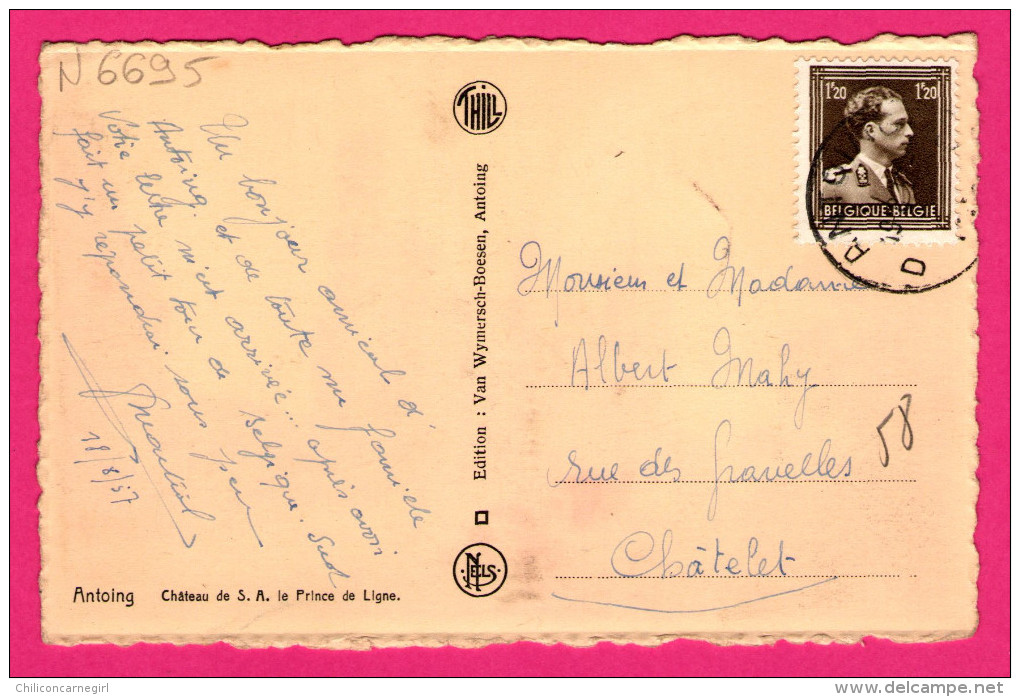 N 6695
Un bonjour amical d'
Antoing. et de toute ma famille
Votre lettre m'est arrivée.. après avoir
fait un petit tour de Belgique.
j'y répondrai sous peu
Martial
18/8/57
Antoing Château de S. A. le Prince de Ligne.
THILL
Edition : Van Wymersch-Boesen, Antoing
NELS
1F20 1F20
BELGIQUE-BELGIE
Monsieur et Madame
Albert Mahy
rue des gravelles
58
Châtelet
Chiliconcarnegirl
delcampe.net